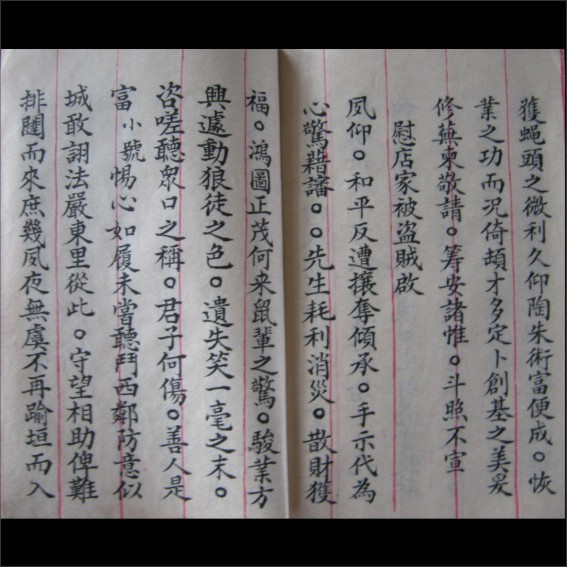 獲蝇頭之微利久仰陶朱術富便成。恢
業之功而况倚頓才多定卜創基之美爰
修蕪柬敬請。筹安諸惟。斗照不宣
慰店家被盜賊啟
夙仰。和平反遭攘奪傾承。手示代為
心驚藉審。。先生耗利消災。散財獲
福。鴻圖正茂何来鼠輩之驚。駿業方
興遽動狼徒之色。遺失笑一毫之末。
咨嗟聽衆口之稱。君子何傷。善人是
富小號惕心如履未當聽鬥西鄭防意似
城敢詡法嚴東里從此。守望相助俾難
排闥而來庶幾夙夜無虞不再踰垣而入